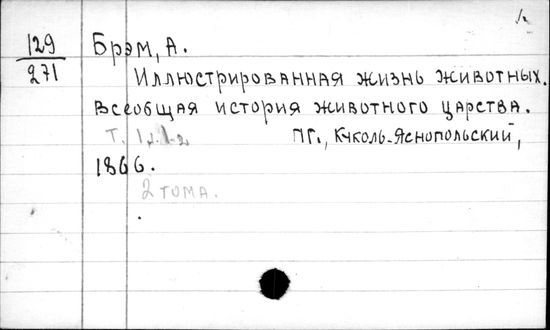 129
271
Брэм, А.
Иллюстрированная жизнь животных.
Всеобщая история животного царства.
Т. 1
ПГ., Кколь-Яснопольский,
1866.
2 тома.